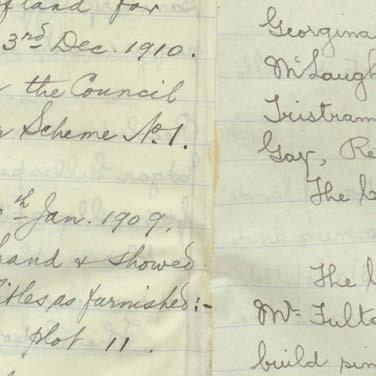 land for
3rd Dec. 1910.
the Council
Scheme No. 1.
th Jan. 1909.
hand & showed
titles as furnished:-
plot 11.
Georgina
McLaugh
Tristram
Gay, Re
The l
The l
Mr. Fulto
build sim